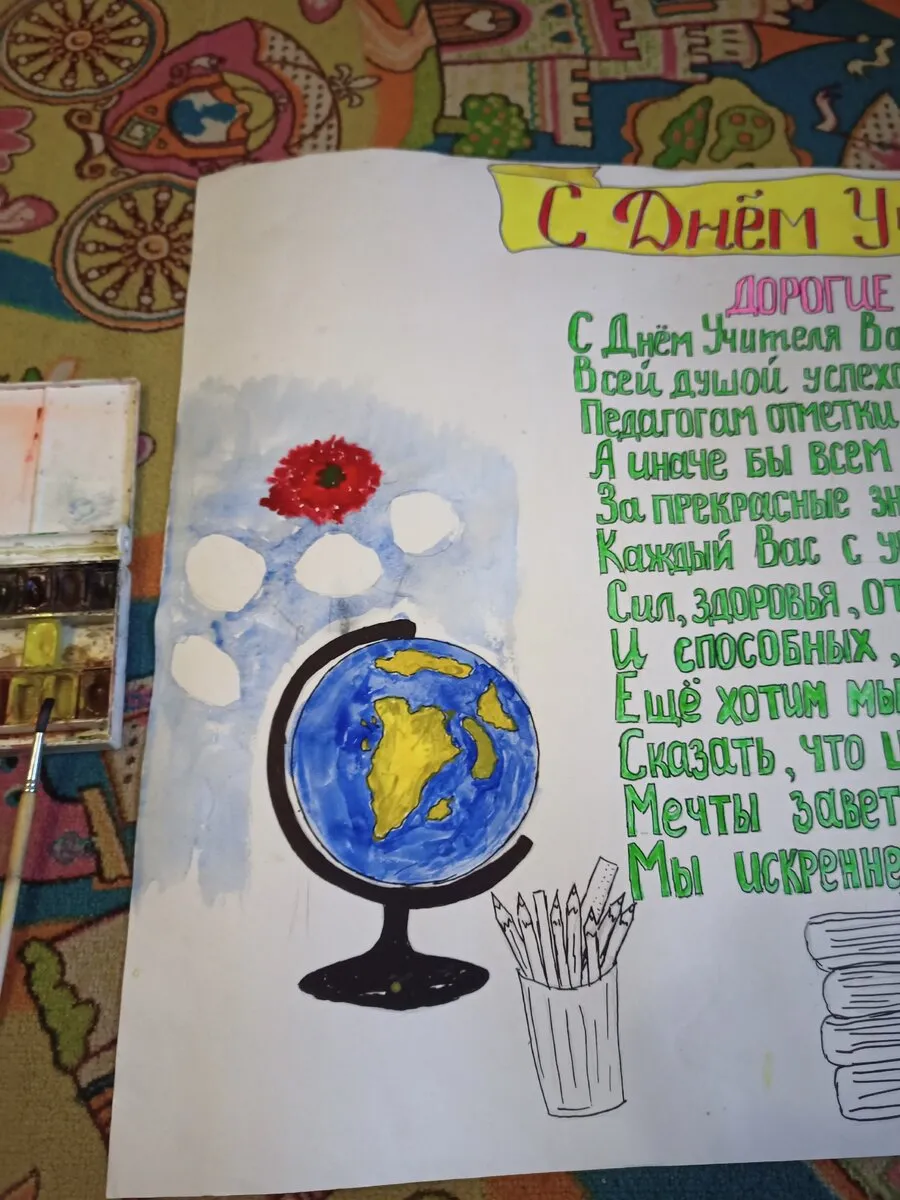 С Днём
ДОРОГИЕ
С Днём Учителя
Всей душой
Педагогам отметки
А иначе бы всем
За прекрасные
Каждый Вас с
Сил, здоровья,
И способных,
Ещё хотим мы
Сказать, что
Мечты
Мы искренне